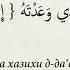 ي وَعَدْتَهُ { إِ
а хазихи д-да'